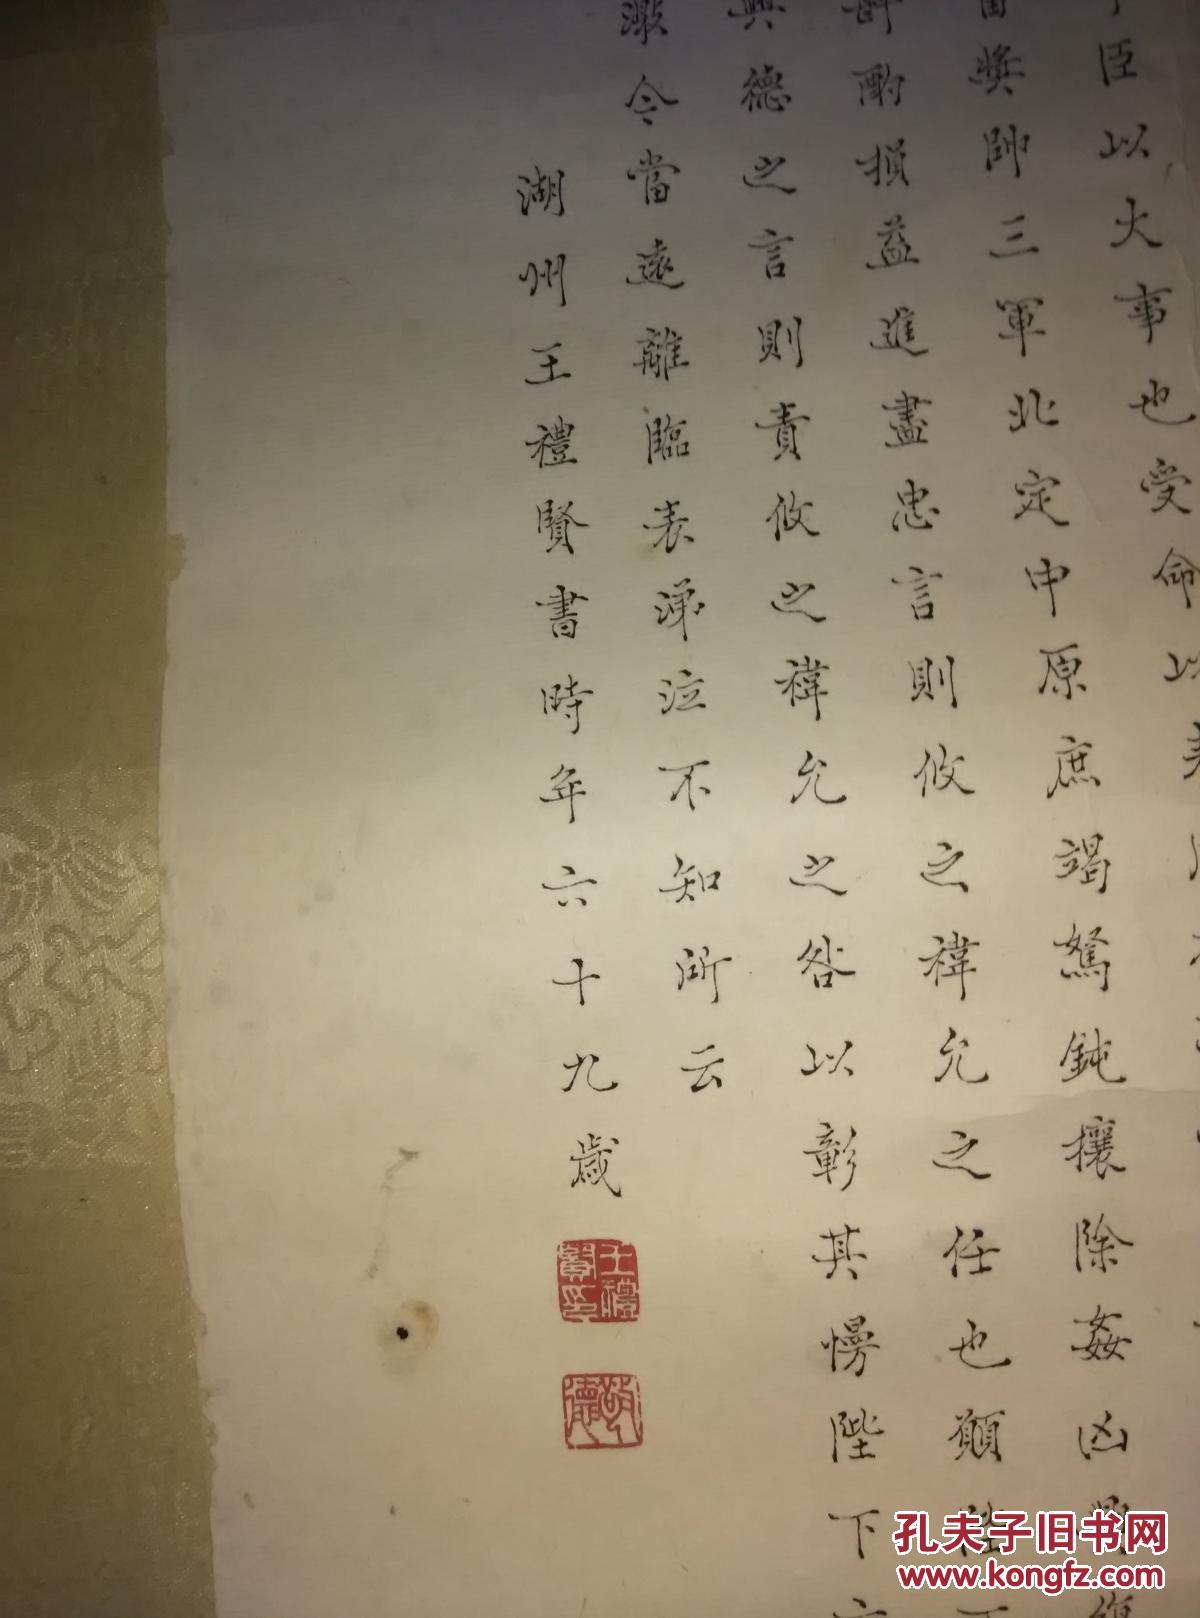 臣以大事也受命以
當獎帥三軍北定中原庶竭駑鈍攘除姦凶興復
斟酌損益進盡忠言則攸之禕允之任也願陛下
興德之言則責攸之禕允之咎以彰其慢陛下亦
激今當遠離臨表涕泣不知所云
湖州王禮賢書時年六十九歲
王禮賢印
敬德
孔夫子旧书网
www.kongfz.com